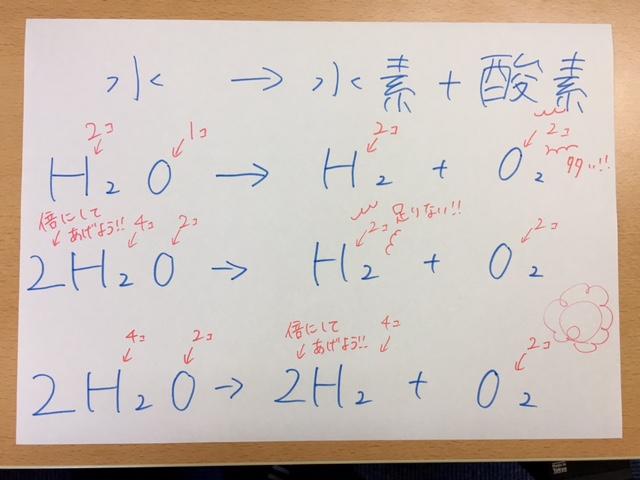 水 → 水素 + 酸素
2コ 1コ 2コ 2コ 多い!!
H₂O → H₂ + O₂
倍にしてあげよう!! 4コ 2コ 2コ 足りない!! 2コ
2H₂O → H₂ + O₂
4コ 2コ 倍にしてあげよう!! 4コ 2コ
2H₂O → 2H₂ + O₂